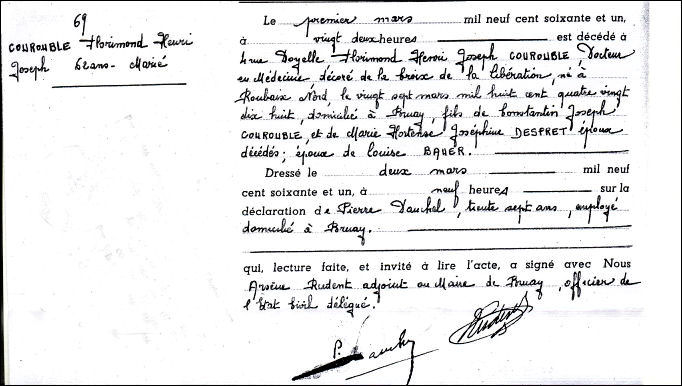 69
COUROUBLE Florimond Henri
Joseph 62 ans - Marié
Le premier mars mil neuf cent soixante et un,
à vingt deux heures est décédé à
4 rue Doyelle Florimond Henri Joseph COUROUBLE, Docteur
en Médecine décoré de la Croix de la libération, né à
Roubaix Nord, le vingt sept mars mil huit cent quatre vingt
dix huit, domicilié à Bruay, fils de Constantin Joseph
COUROUBLE, et de Marie Hortense Joséphine DESPRET époux
décédés; époux de Louise BAUER.
Dressé le deux mars mil neuf
cent soixante et un, à neuf heures sur la
déclaration de Pierre Dauchel, trente sept ans, employé
domicilié à Bruay.
qui, lecture faite, et invité à lire l'acte, a signé avec Nous
Arsène Rudent adjoint au Maire de Bruay, officier de
l'Etat Civil délégué.
P.